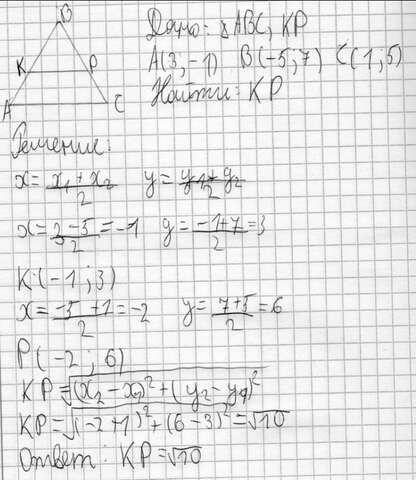 B
K P
A C
Дано: △ABC, KP
A(3, -1) B(-5; 7) C(1; 5)
Найти: KP
Решение:
x = (x₁ + x₂)/2 y = (y₁ + y₂)/2
x = (3-5)/2 = -1 y = (-1+7)/2 = 3
K(-1; 3)
x = (-5+1)/2 = -2 y = (7+5)/2 = 6
P(-2; 6)
KP = √((x₂ - x₁)² + (y₂ - y₁)²)
KP = √((-2+1)² + (6-3)²) = √10
Ответ: KP = √10